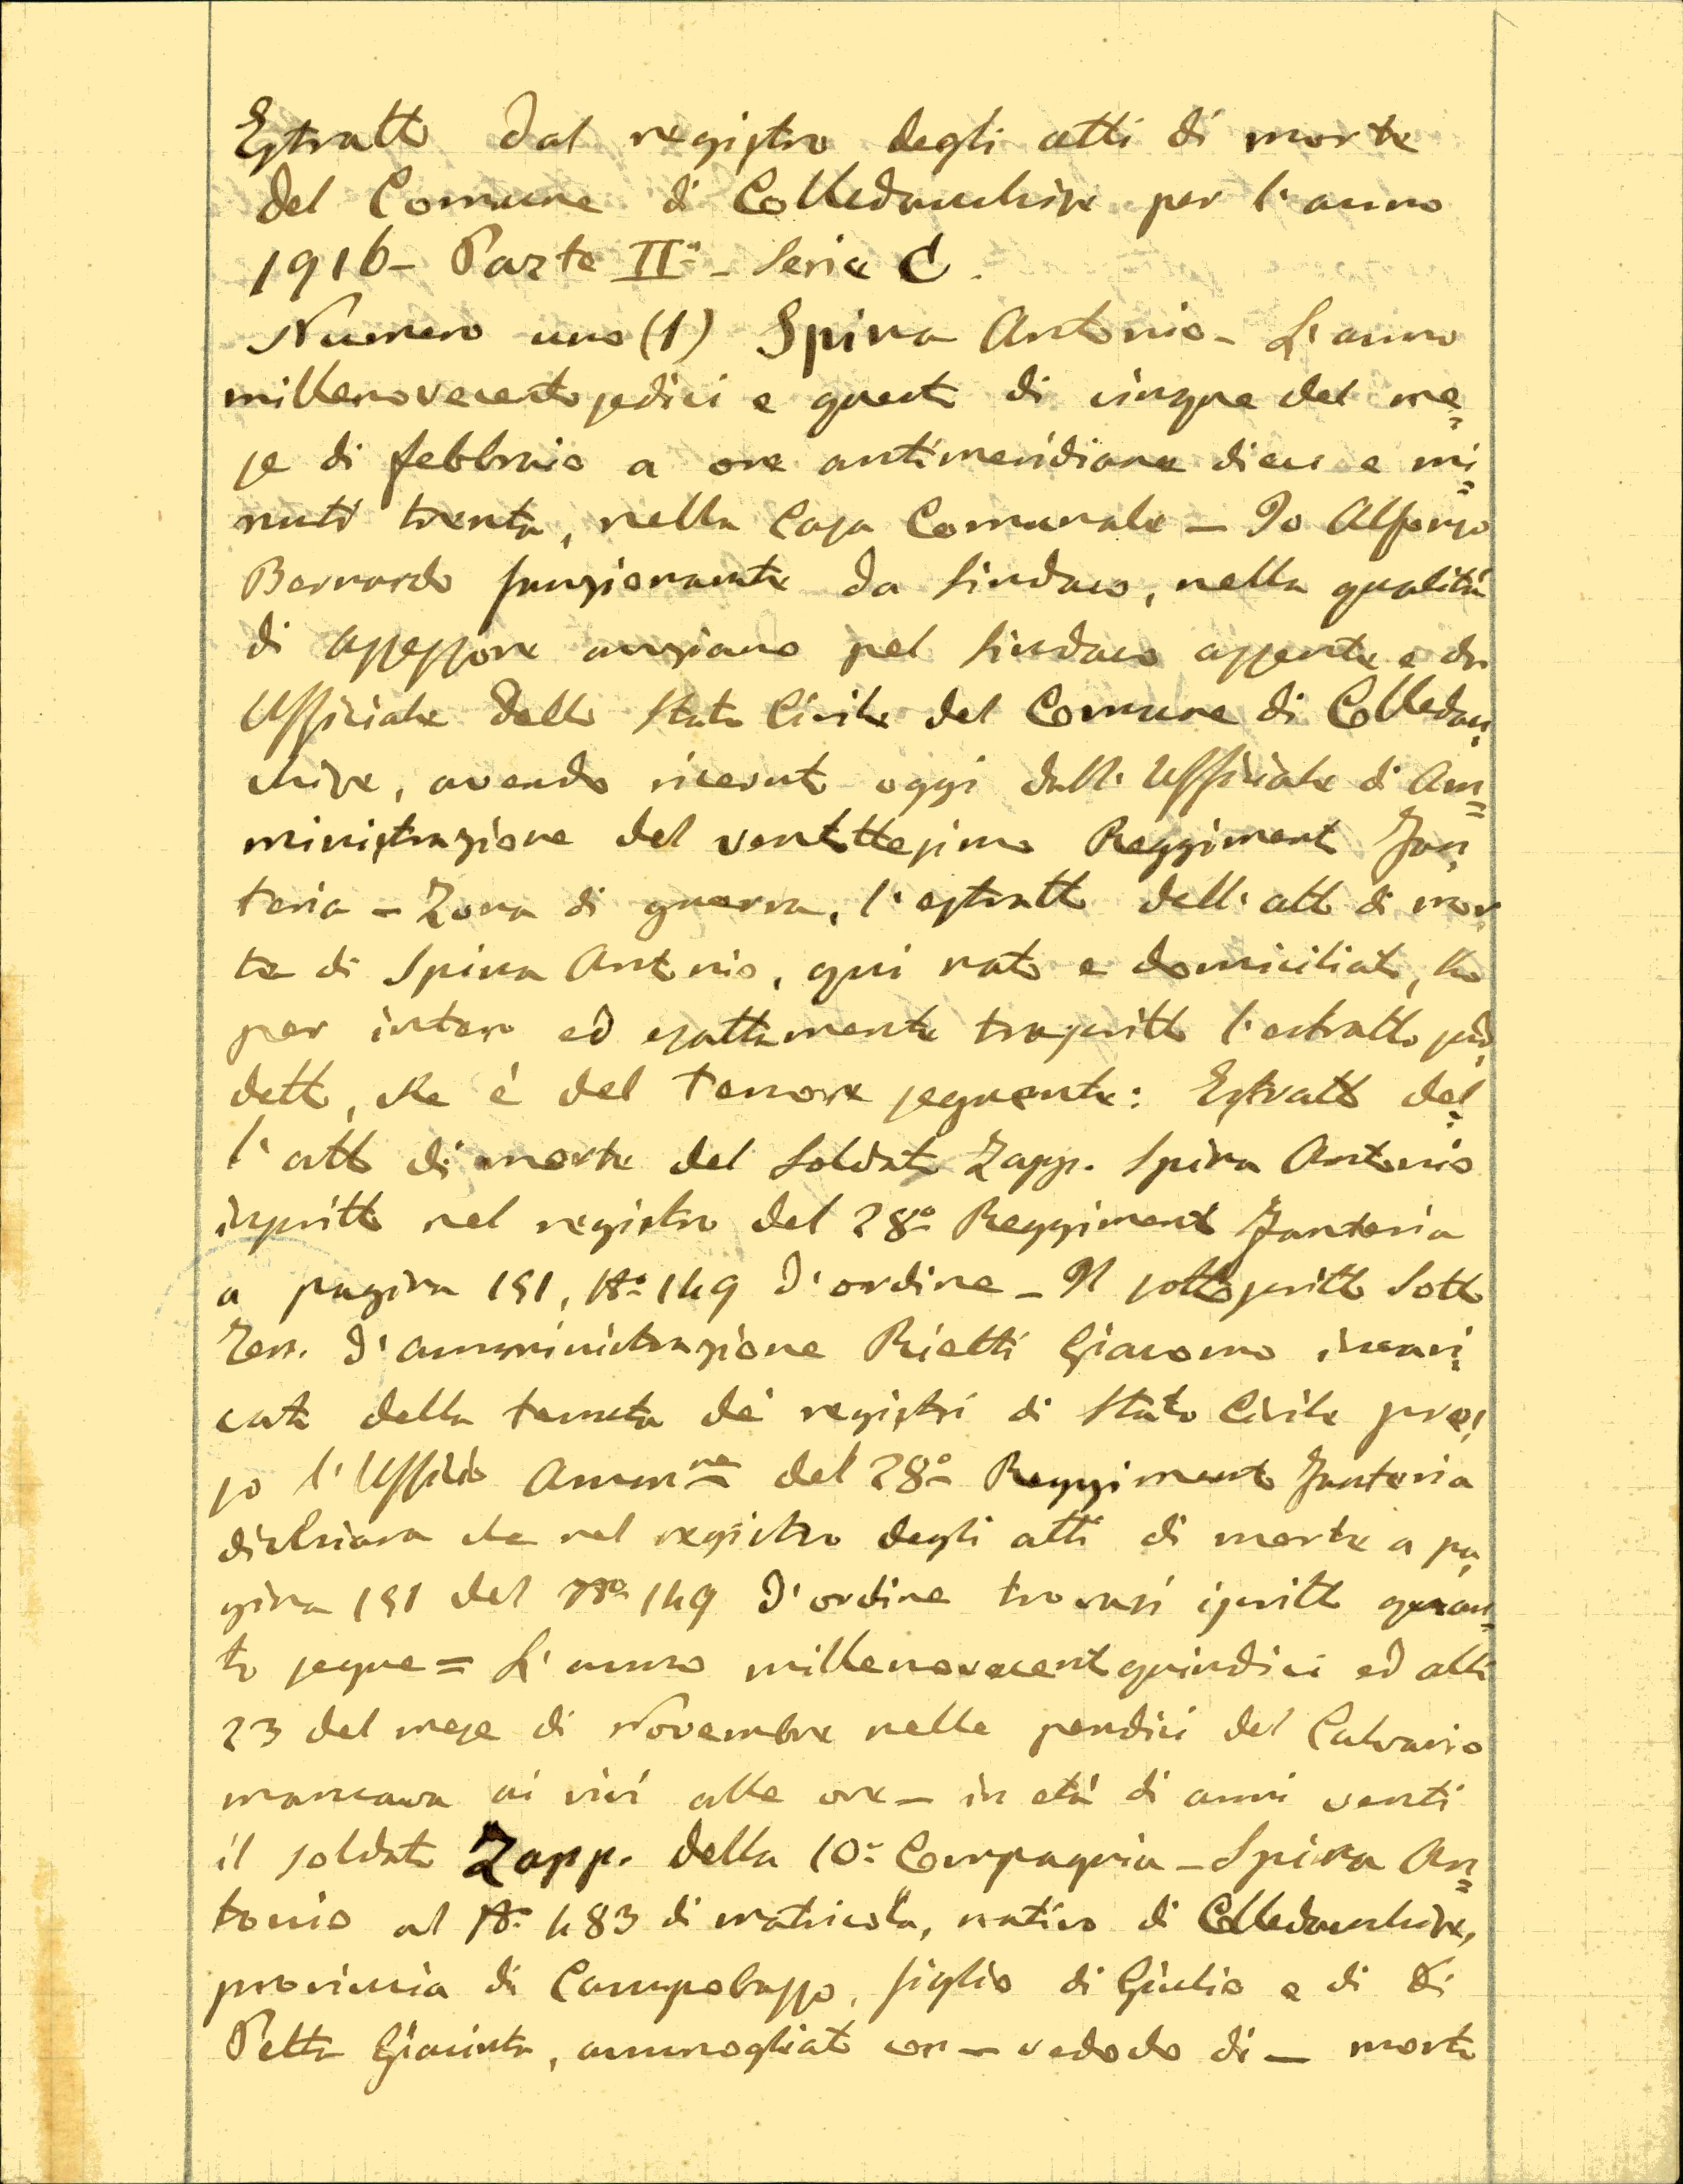 Estratto dal registro degli atti di morte
del Comune di Colledanchise per l'anno
1916 - Parte IIª - Serie C.
Numero uno (1) Spina Antonio - L'anno
millenovecentosedici e questo dì cinque del me=
se di febbraio a ore antimeridiane dieci e mi=
nuti trenta, nella Casa Comunale - Io Alfonso
Bernardo funzionante da Sindaco, nella qualità
di assessore anziano pel Sindaco assente e da
Ufficiale dello Stato Civile del Comune di Colledan=
chise, avendo ricevuto oggi dall'Ufficiale di Am=
ministrazione del ventottesimo Reggimento Fan=
teria - Zona di guerra, l'estratto dell'atto di mor=
te di Spina Antonio, qui nato e domiciliato, ho
per intero ed esattamente trascritto l'estratto sud=
detto, che è del tenore seguente: Estratto del=
l'atto di morte del Soldato Zapp. Spina Antonio
inscritto nel registro del 28º Reggimento Fanteria
a pagina 151, Nº 149 d'ordine - Il sottoscritto Sotto
Ten. d'amministrazione Rietti Giacomo incari=
cato della tenuta dei registri di Stato Civile pres=
so l'Ufficio Amm.ne del 28º Reggimento Fanteria
dichiara che nel registro degli atti di morte a pa=
gina 151 del Nº 149 d'ordine trovasi iscritto quan=
to segue = L'anno millenovecentoquindici ed alli
23 del mese di Novembre nelle pendici del Calvario
mancava ai vivi alle ore - in età di anni venti
il soldato Zapp. della 10ª Compagnia - Spina An=
tonio al Nº 483 di matricola, nativo di Colledanchise,
provincia di Campobasso, figlio di Giulio e di Di
Petta Giacinta, ammogliato con - vedovo di - morto